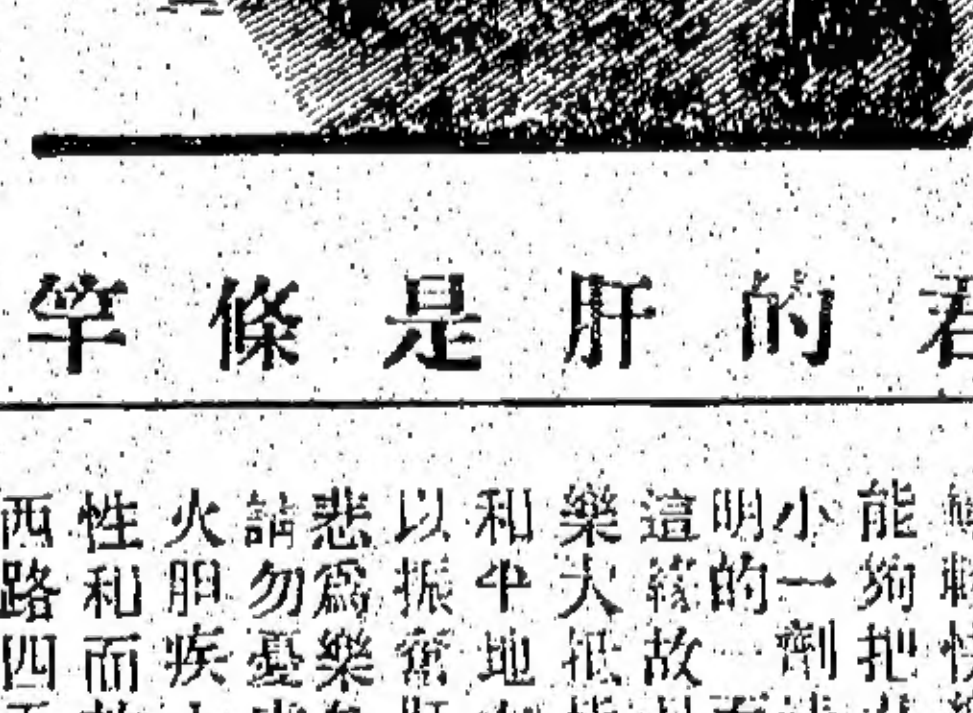 君的肝是條竿
能夠把
小一劑
明的一
這緣故
樂大抵
和平地
以振奮
悲爲樂
請勿憂
火胆疾
性和而
西路四